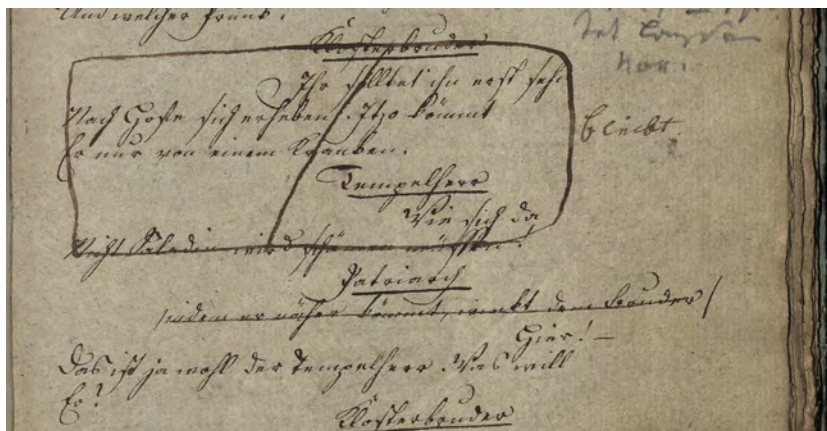 Und welcher Prunk!
Klosterbruder
Ihr solltet ihn erst sehn
Nach Hofe sich erheben. Itzo kömmt
Er nur von einem Kranken.
bleibt.
Tempelherr
Wie sich da
Nicht Saladin wird schämen müssen!
Patriarch
indem er näher kömmt, winkt dem Bruder/
Hier! —
Das ist ja wohl der Tempelherr. Was will
Er?
Klosterbruder